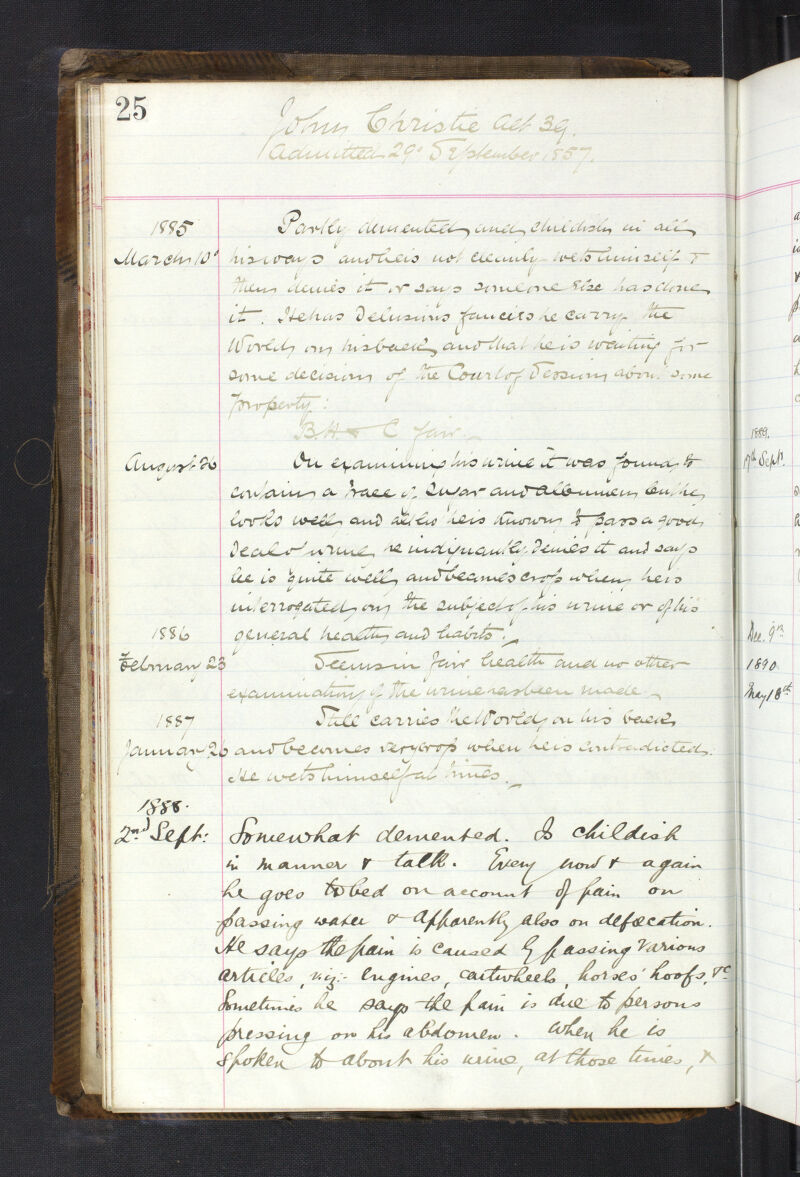 25
John Christie Aet 39.
Admitted 29th September 1857.
1885
March 10th
Partly demented and childish in all
his ways and he is not cleanly wets himself &
then denies it or says someone else has done
it. He has Delusions fancies he carrys the
World on his back and that he is waiting for
some decision of the Court of Session about some
property:
B.H. & C fair.
August 26
On examining his urine it was found to
contain a trace of Sugar and albumen but he
looks well and altho he is known to pass a good
deal of urine he indignantly denies it and says
he is quite well and becomes cross when he is
interrogated on the subject of his urine or of his
general health and habits.
1886
February 23
Seems in fair health and no other
examination of the urine has been made.
1887
January 26
Still carries the World on his back
and becomes very cross when he is contradicted.
He wets himself at times.
1888.
2nd Sept:
Somewhat demented. Is childish
in manner & talk. Every now & again
he goes to bed on account of pain on
passing water & apparently also on defæcation.
He says the pain is caused by passing various
articles, viz:- engines, cartwheels, horses' hoofs, &c
Sometimes he says the pain is due to persons
pressing on his abdomen. When he is
spoken to about his urine, at those times, &
1889.
17th Sept.
Dec. 9th
1890
May 18th